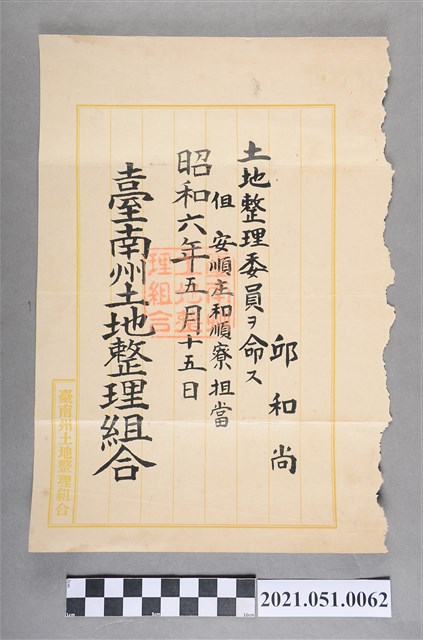 邱和尚
土地整理委員ヲ命ス
但 安順庄和順寮担當
昭和六年五月十五日
臺南州土地整理組合
臺南州土地整理組合
2021.051.0062